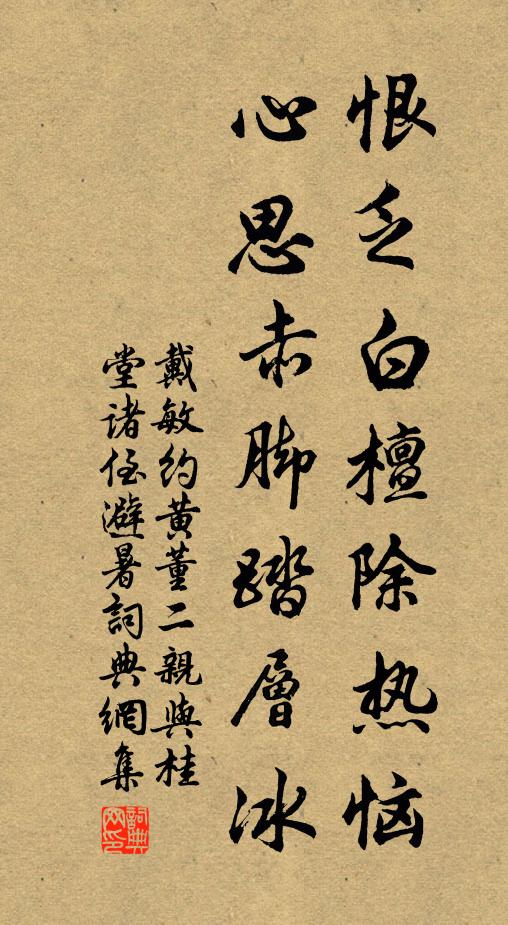 恨乏白檀除热恼
心思赤脚踏層冰
戴敏約黄董二親與桂
堂诸侄避暑詞典網集
詞典网印